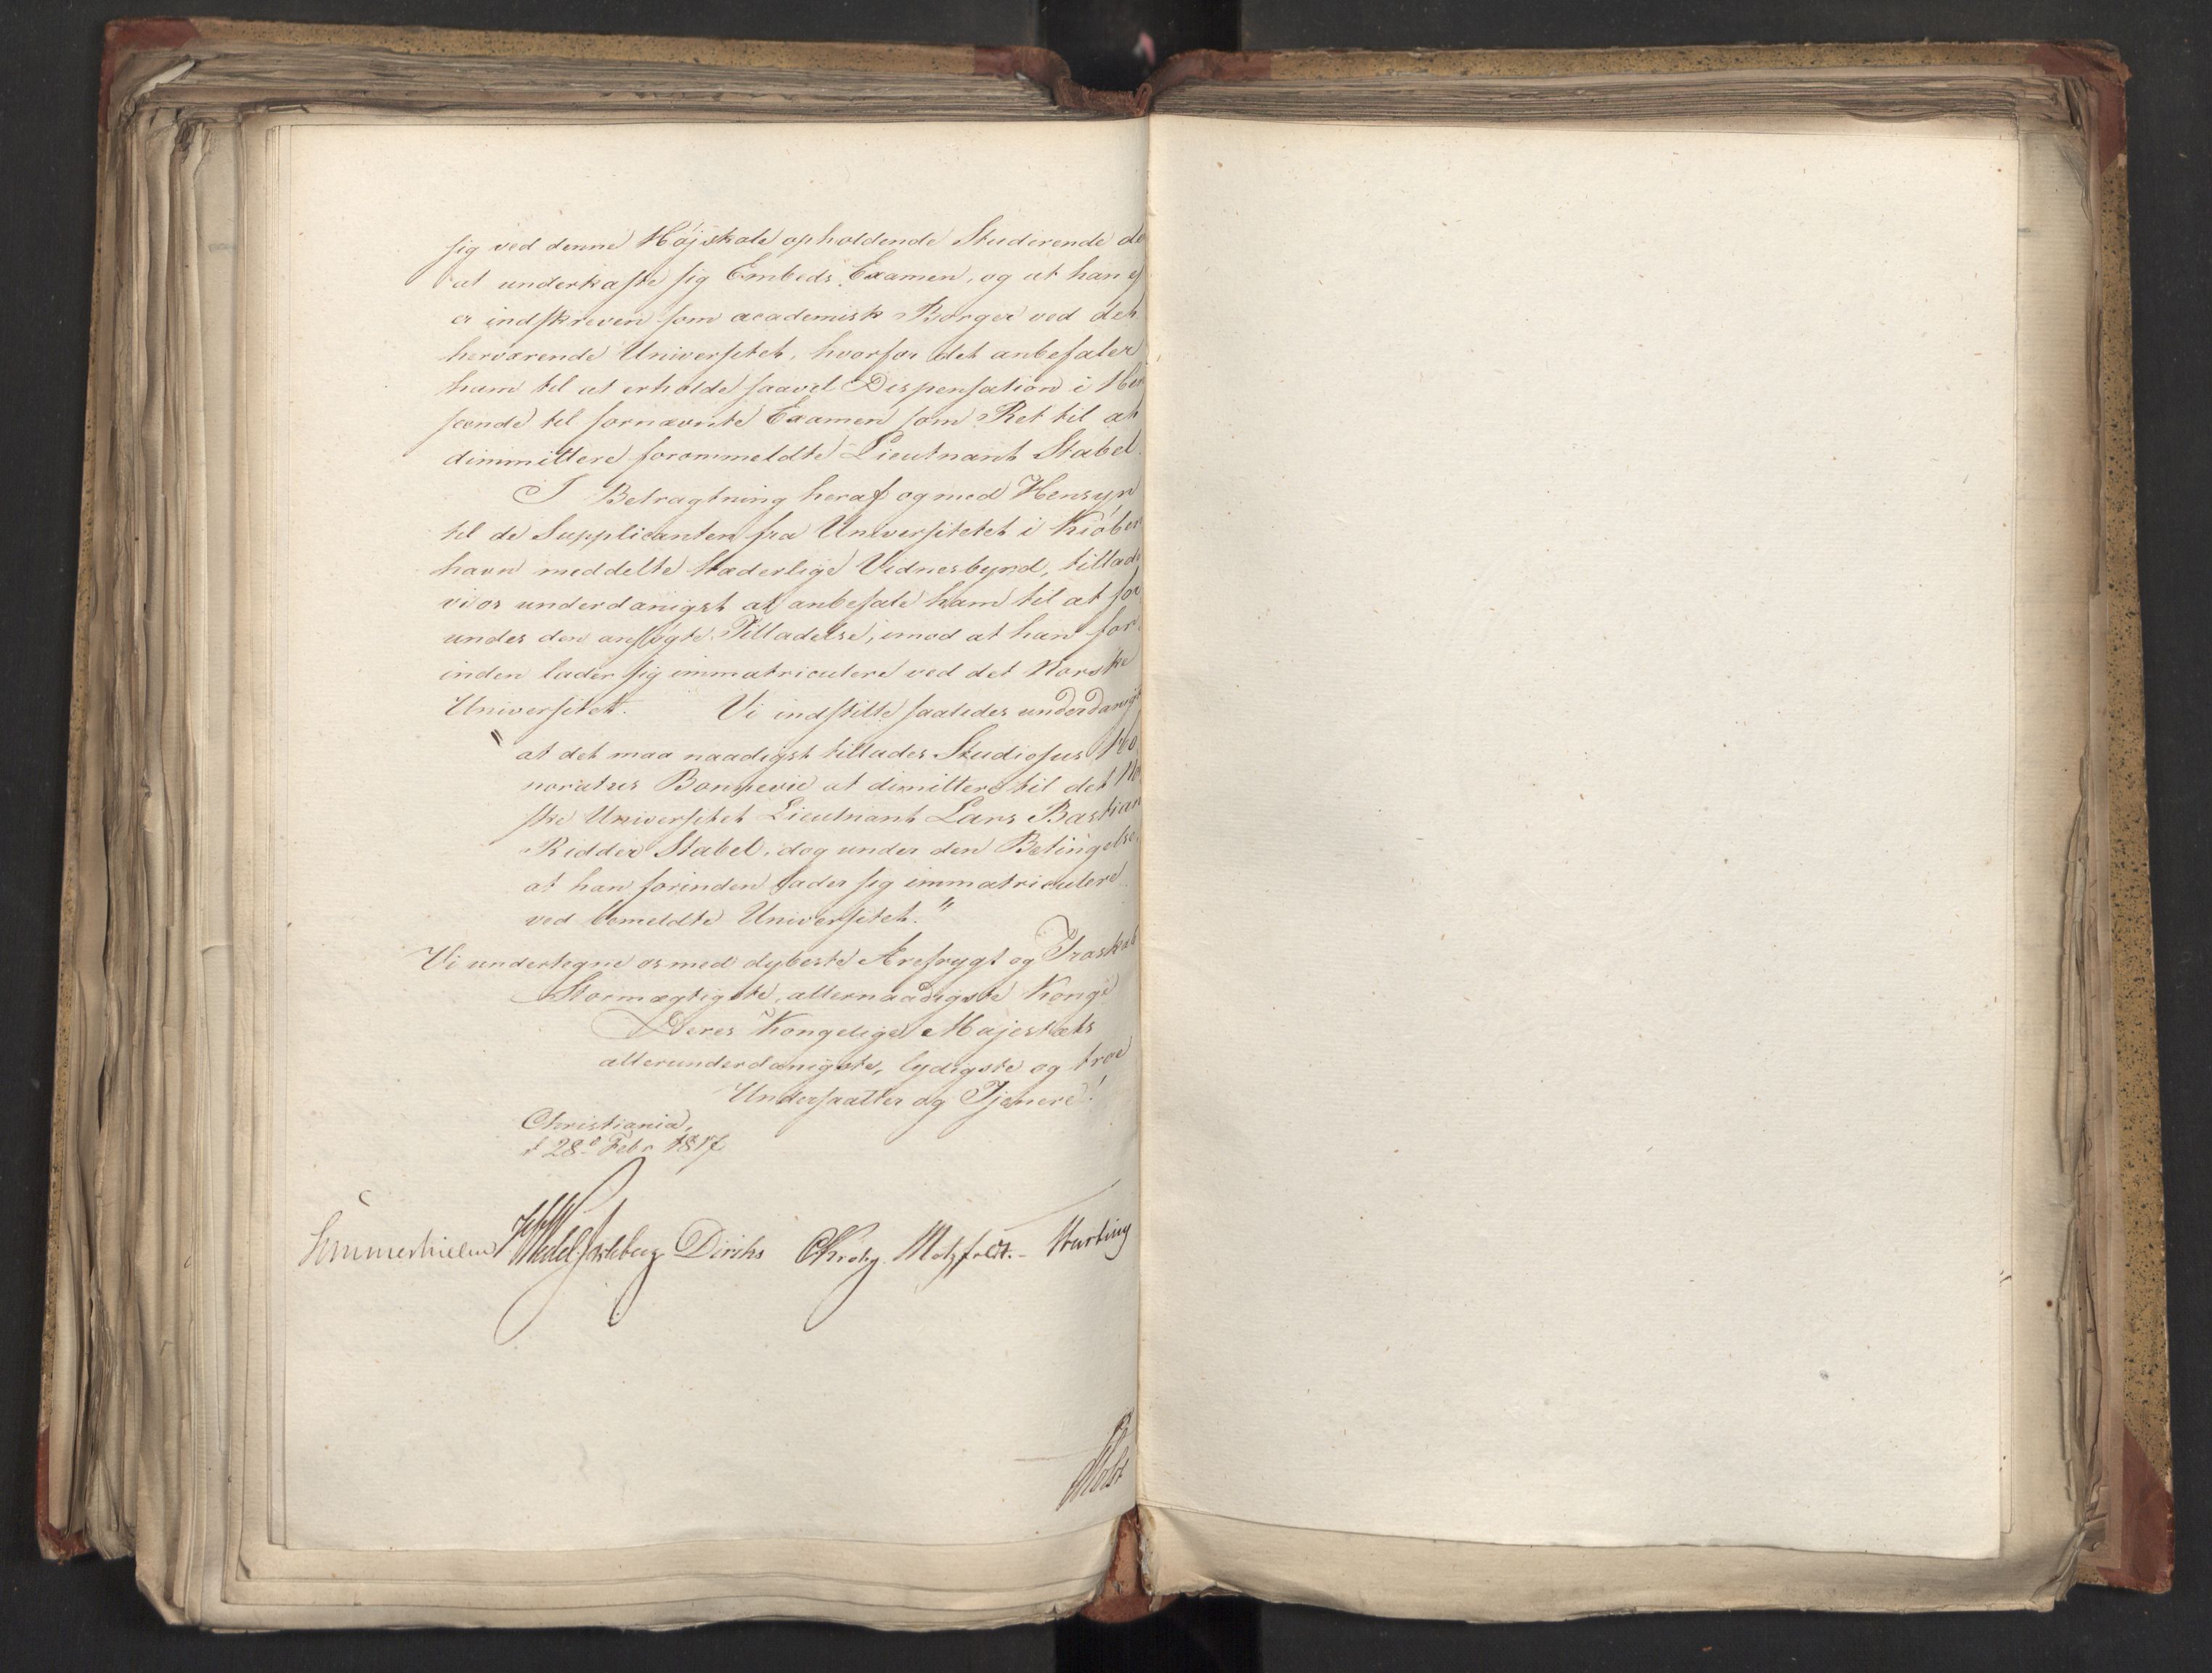 sig ved denne Højskole opholdende Studerende de
at underkaste sig Embeds Examen, og at han ej
er indskreven som academisk Borger ved det
herværende Universitet, hvorfor det anbefaler
ham til at erholde saavel Dispensation i Hen
seende til fornævnte Examen som Ret til at
dimmittere forommeldte Lieutnant Stabel.
I Betragtning heraf og med Hensyn
til de Supplicanten fra Universitetet i Kiöben
havn meddelte hæderlige Vidnesbyrd, tillade
vi os underdanigst at anbefale ham til at for
undes den ansøgte Tilladelse, imod at han for
inden lader sig immatriculere ved det Norske
Universitet. Vi indstille saaledes underdanigst
" at det maa naadigst tillades Studiosus Ho
noratus Bonnevie at dimittere til det No
ske Universitet Lieutnant Lars Bastian
Ridder Stabel, dog under den Betingelse,
at han forinden lader sig immatriculere
ved bemeldte Universitet."
Vi undertegne os med dybeste Ærefrygt og Troskab
Stormægtigste, allernaadigste Konge
Deres Kongelige Majestæts
allerunderdanigste, lydigste og troe
Undersaatter og Tjenere!
Christiania,
d 28d Febr 1817
Sommerhielm Wedel Jarlsberg Diriks CKrohg. Motzfeldt. Harbing
Holst